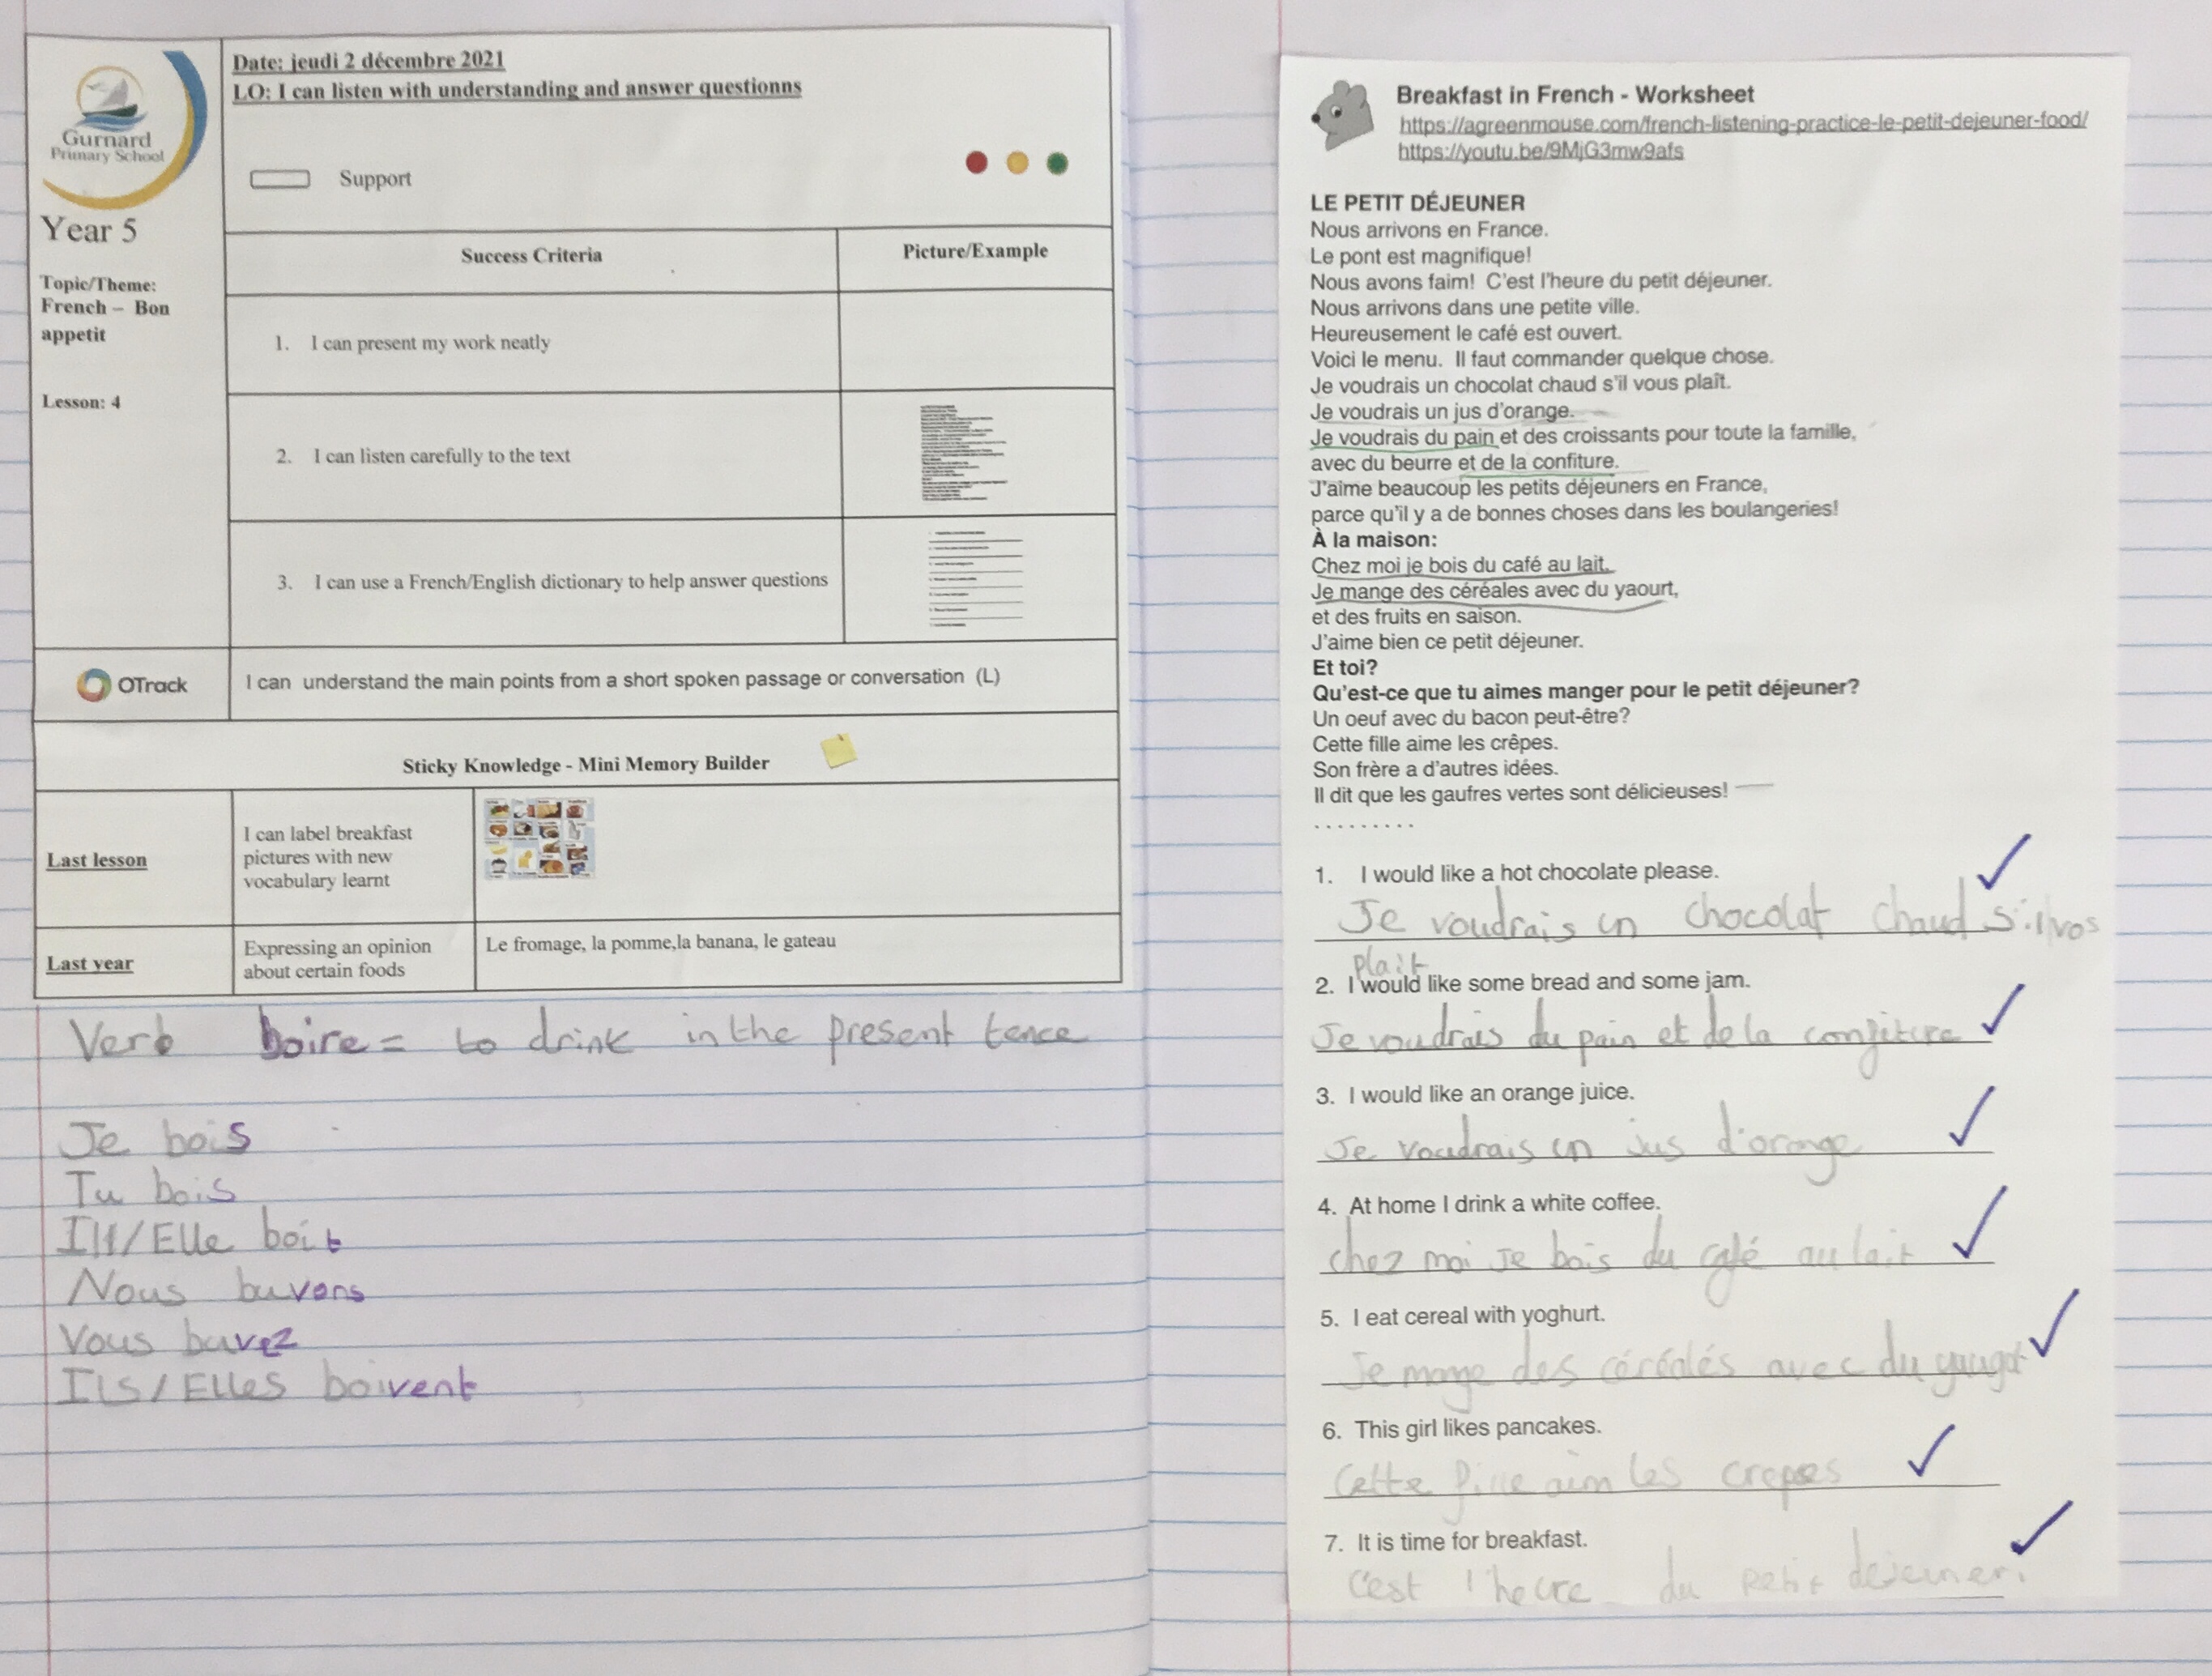 Gurnard
Primary School
Year 5
Topic/Theme:
French – Bon
appetit
Lesson: 4
Date: jeudi 2 décembre 2021
LO: I can listen with understanding and answer questionns
Support
Success Criteria
Picture/Example
1. I can present my work neatly
2. I can listen carefully to the text
3. I can use a French/English dictionary to help answer questions
OTrack
I can understand the main points from a short spoken passage or conversation (L)
Sticky Knowledge - Mini Memory Builder
Last lesson
I can label breakfast
pictures with new
vocabulary learnt
Last year
Expressing an opinion
about certain foods
Le fromage, la pomme,la banana, le gateau
Verb boire = to drink in the present tence
Je bois
Tu bois
Il/Elle boit
Nous buvons
Vous buvez
Ils/Elles boivent
Breakfast in French - Worksheet
https://agreenmouse.com/french-listening-practice-le-petit-dejeuner-food/
https://youtu.be/9MjG3mw9afs
LE PETIT DÉJEUNER
Nous arrivons en France.
Le pont est magnifique!
Nous avons faim! C'est l'heure du petit déjeuner.
Nous arrivons dans une petite ville.
Heureusement le café est ouvert.
Voici le menu. Il faut commander quelque chose.
Je voudrais un chocolat chaud s'il vous plaît.
Je voudrais un jus d'orange.
Je voudrais du pain et des croissants pour toute la famille,
avec du beurre et de la confiture.
J'aime beaucoup les petits déjeuners en France,
parce qu'il y a de bonnes choses dans les boulangeries!
À la maison:
Chez moi je bois du café au lait.
Je mange des céréales avec du yaourt,
et des fruits en saison.
J'aime bien ce petit déjeuner.
Et toi?
Qu'est-ce que tu aimes manger pour le petit déjeuner?
Un oeuf avec du bacon peut-être?
Cette fille aime les crêpes.
Son frère a d'autres idées.
Il dit que les gaufres vertes sont délicieuses!
. . . . . . . . .
1. I would like a hot chocolate please.
Je voudrais un chocolat chaud s'il vos
plait
2. I would like some bread and some jam.
Je voudrais du pain et de la confiture
3. I would like an orange juice.
Je voudrais un jus d'orange
4. At home I drink a white coffee.
chez moi je bois du café au lait
5. I eat cereal with yoghurt.
Je mange des céréalés avec du
6. This girl likes pancakes.
Cette fille aim les crepes
7. It is time for breakfast.
C'est l'heure du petit dejeuner.